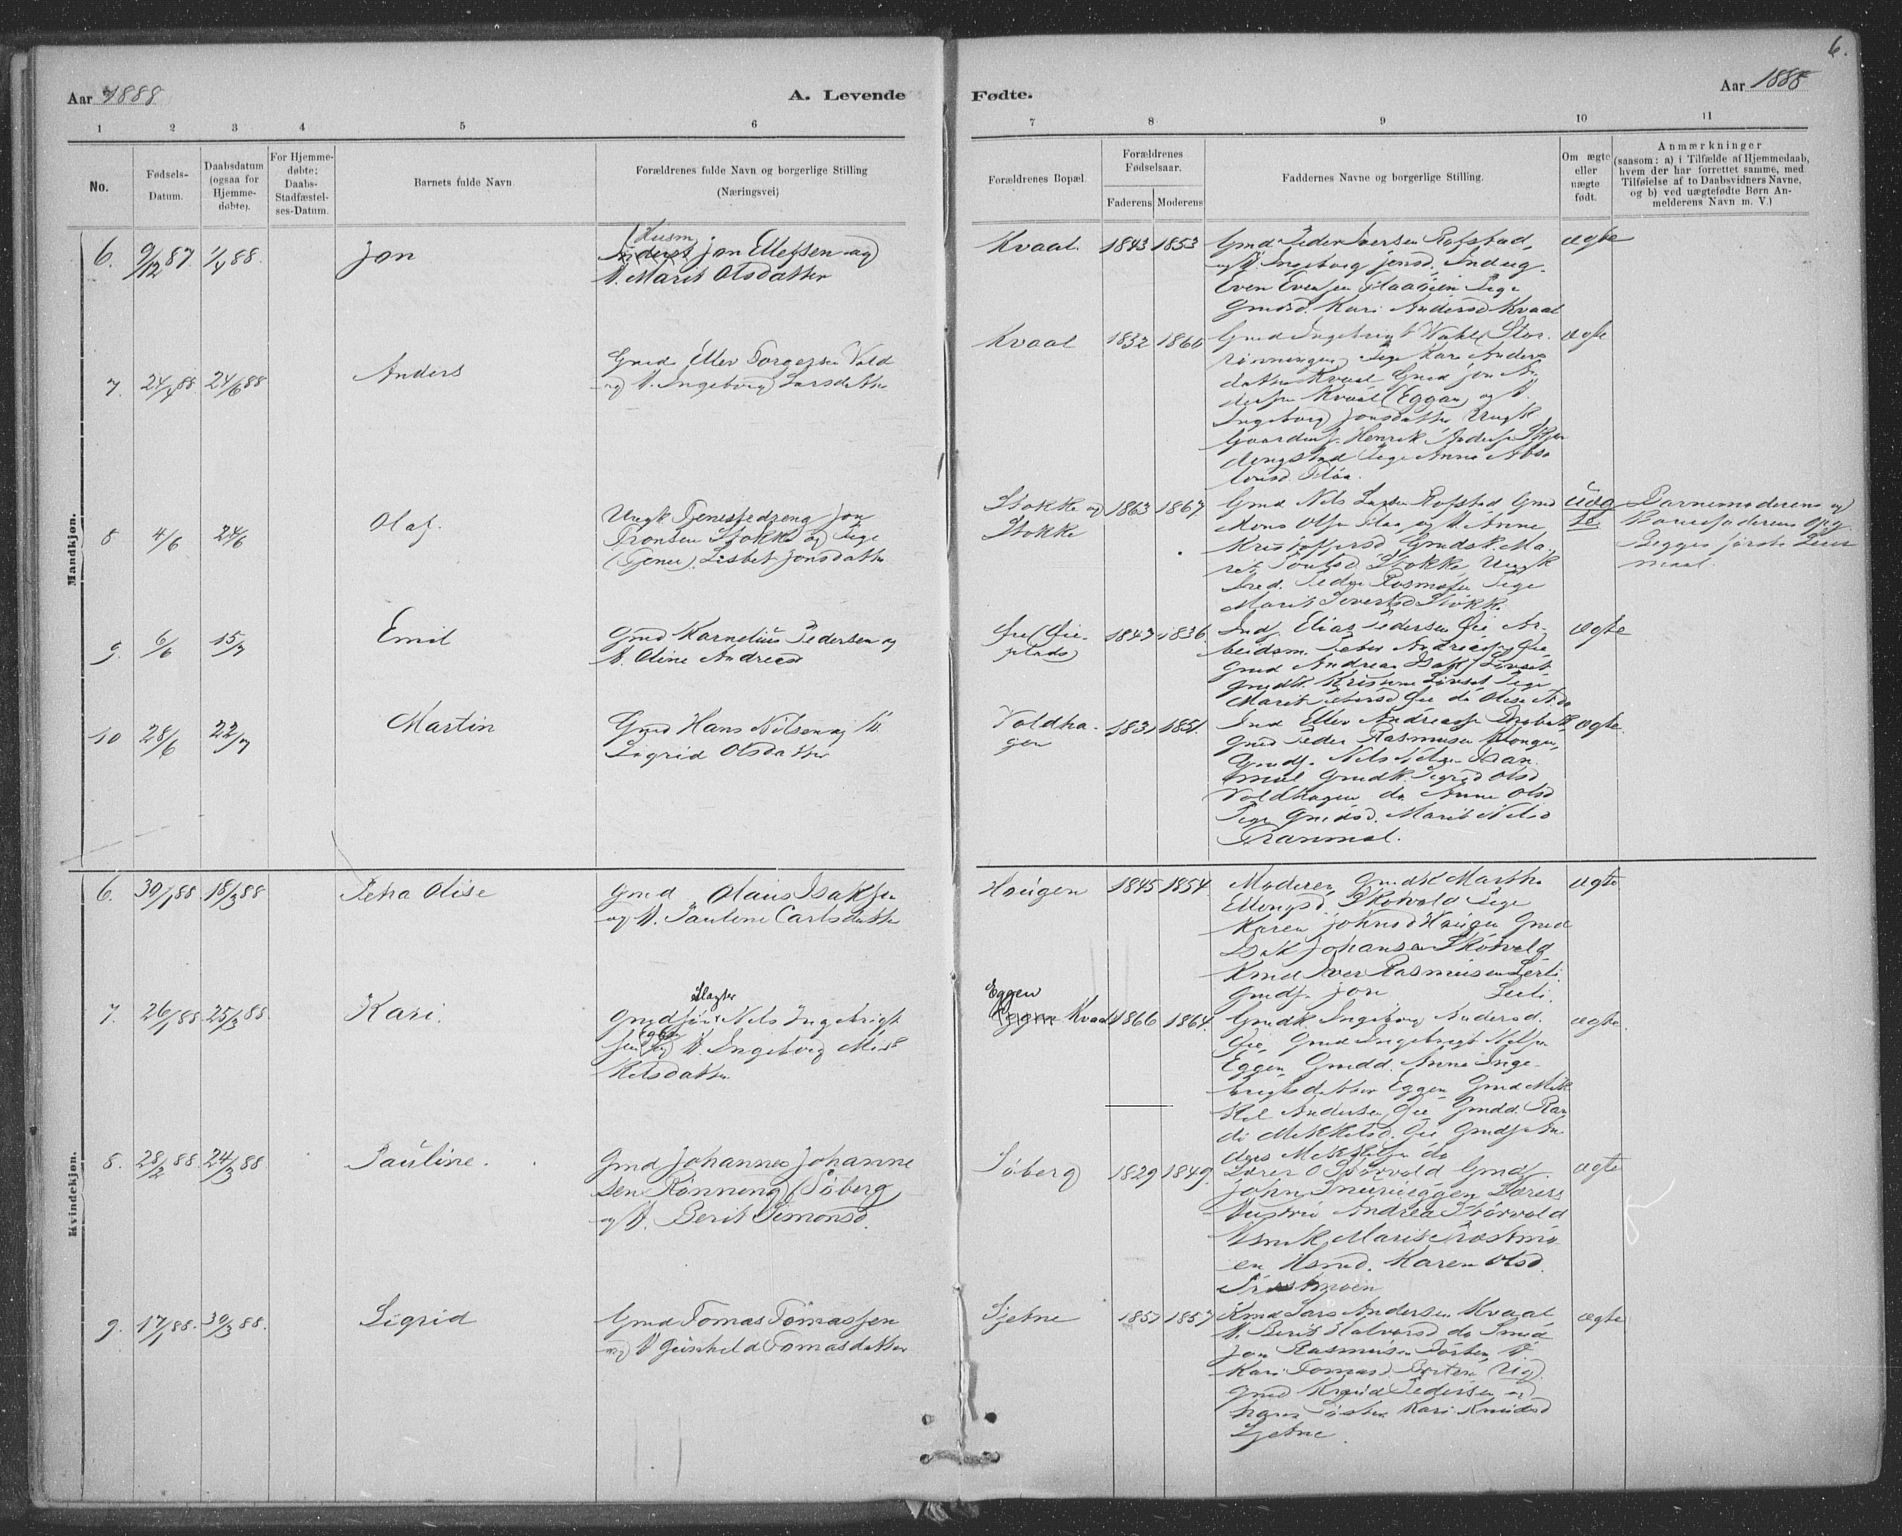 6.
Aar 1888
A. Levende
Fødte.
Aar 1888
1 2 3 4 5 6
7 8 9 10 11
No.
Fødsels-
Datum.
Daabsdatum
(ogsaa for
Hjemme-
døbte).
For Hjemme-
døbte:
Daabs-
Stadfæstel-
ses-Datum.
Barnets fulde Navn.
Forældrenes fulde Navn og borgerlige Stilling
(Næringsvei)
Forældrenes Bopæl.
Forældrenes
Fødselsaar.
Faderens Moderens
Faddernes Navne og borgerlige Stilling.
Om ægte
eller
uægte
født.
Anmærkninger
(saasom: a) i Tilfælde af Hjemmedaab,
hvem der har forrettet samme, med
Tilføielse af to Daabsvidners Navne,
og b) ved uægtefødte Børn An-
melderens Navn m. V.)
Mandkjøn.
6. 9/12 87. 1/4 88. Jon
Husm
Jon Ellefsen og
K. Marit Olsdatter
Kvaal. 1843 1853
Gmd Peder Iversen Rofstad,
og K. Ingeborg Jonsd. Inderg.
Even Evensen Flaaøien Pige
Gmdsd. Kari Andersd Kvaal
ægte
7. 24/4 88. 24/6 88 Anders
Gmd Eller Torgersen Vold
og K. Ingeborg Larsdatter
Kvaal 1832 1860
Gmd Ingebrigt Vohl Stor
rønningen Pige Kari Anders
datter Kvaal Gmd Jon An
dersen Kvaal (Eggan) og K.
Ingeborg Jonsdatter Ungk
Gaardmf. Henrik Andersen Skjer
dingstad Pige Anne Abso
lonsd. Fløa.
ægte
8 4/6 24/6 Olaf.
Ungk Tjenestedreng Jon
Tronsen Stokke og Pige
(Tjener) Lisbet Jonsdatter
Stokke og
Stokke
1863 1867
Gmd Nils Larsen Rofstad Gmd
Mons Olsen Flaa og K. Anne
Kristoffersd. Gmdsk. Ma
ret Stokke Ungk
Pige
Marit Sivertsd Stokke
Uæg
te
Barnemoderens og
Barnefaderens Opg.
Begges første Leier
maal.
9. 6/6 15/7 Emil
Gmd Karnelius Pedersen og
K. Oline Andreasd
Øie (Øie-
plads)
1847 1836.
Ind. Elias Pedersen Øie Ar-
beidsm. Peter Andreassen Øie
Gmd Andreas Isaks. Løvset
Gmdk. Kristine Løvset Pige
Marit Petersd Øie do Olise
ægte
10 28/6 22/7 Martin
Gmd Hans Nilsen og K.
Sigrid Olsdatter
Voldha-
gen
1831 1851.
Ind Eller Andreassen
Gmd Peder Rasmusen Klongen,
Gmdf. Nils Nilsen Tran
mæl Gmdk. Sigrid Olsd
Voldhagen do Anne Olsd
Pige Gmdsd. Marit Nilsd
Tranmæl.
ægte.
Kvindekjøn.
6. 30/1 88 18/3 88 Petra Olise
Gmd Olaus Isaksen
og K. Pauline Carlsdatter
Haugen 1845 1854.
Moderen, Gmdk Martha
Ellingsd. Skorvold Pige
Karen Johnsd Haugen Gmd
Isak Johansen Skorvold
Kmd Iver Rasmusen Lerli
Gmdf. Jon Lerli.
ægte
7. 26/1 88. 25/3 88 Kari.
Slagter
Gmdsøn Nils Ingebrigt
sen og K. Ingeborg Mik
kelsdatter
Eggen
Kvaal
1866 1864.
Gmdk. Ingeborg Andersd.
Øie, Gmd Ingebrigt Nilsen
Eggen, Gmdd. Anne Inge-
brigtsdatter Eggen Gmd Mik
kel Andersen Øie Gmdd. Ran
di Mikkelsd. Øie Gmds. An
ders Mikkelsen do
ægte
8. 28/2 88. 24/3 88 Pauline.
Gmd Johannes Johanne
sen Rønning (Søberg
og K. Berit Simonsd.
Søberg 1829 1849.
Lærer O Skorvold Gmdf.
John Lærers
Hustru Andrea Skorvold
Marit Prestmo
en Hsmd. Karen Olsd.
Prestmoen
ægte
9. 17/1 88. 30/3 88. Sigrid
Gmd Tomas Tomassen
og K Gunhild Tomasdatter
Gjetne 1857 1857
Kmd Lars Andersen Kvaal
K. Berit Halvorsd do Smed
Jon Rasmusen Forten K
Kari Tomasd. Forten Ug.
Gmd Knud Pedersen og
hans Søster Kari Knudsd
Gjetne.
ægte